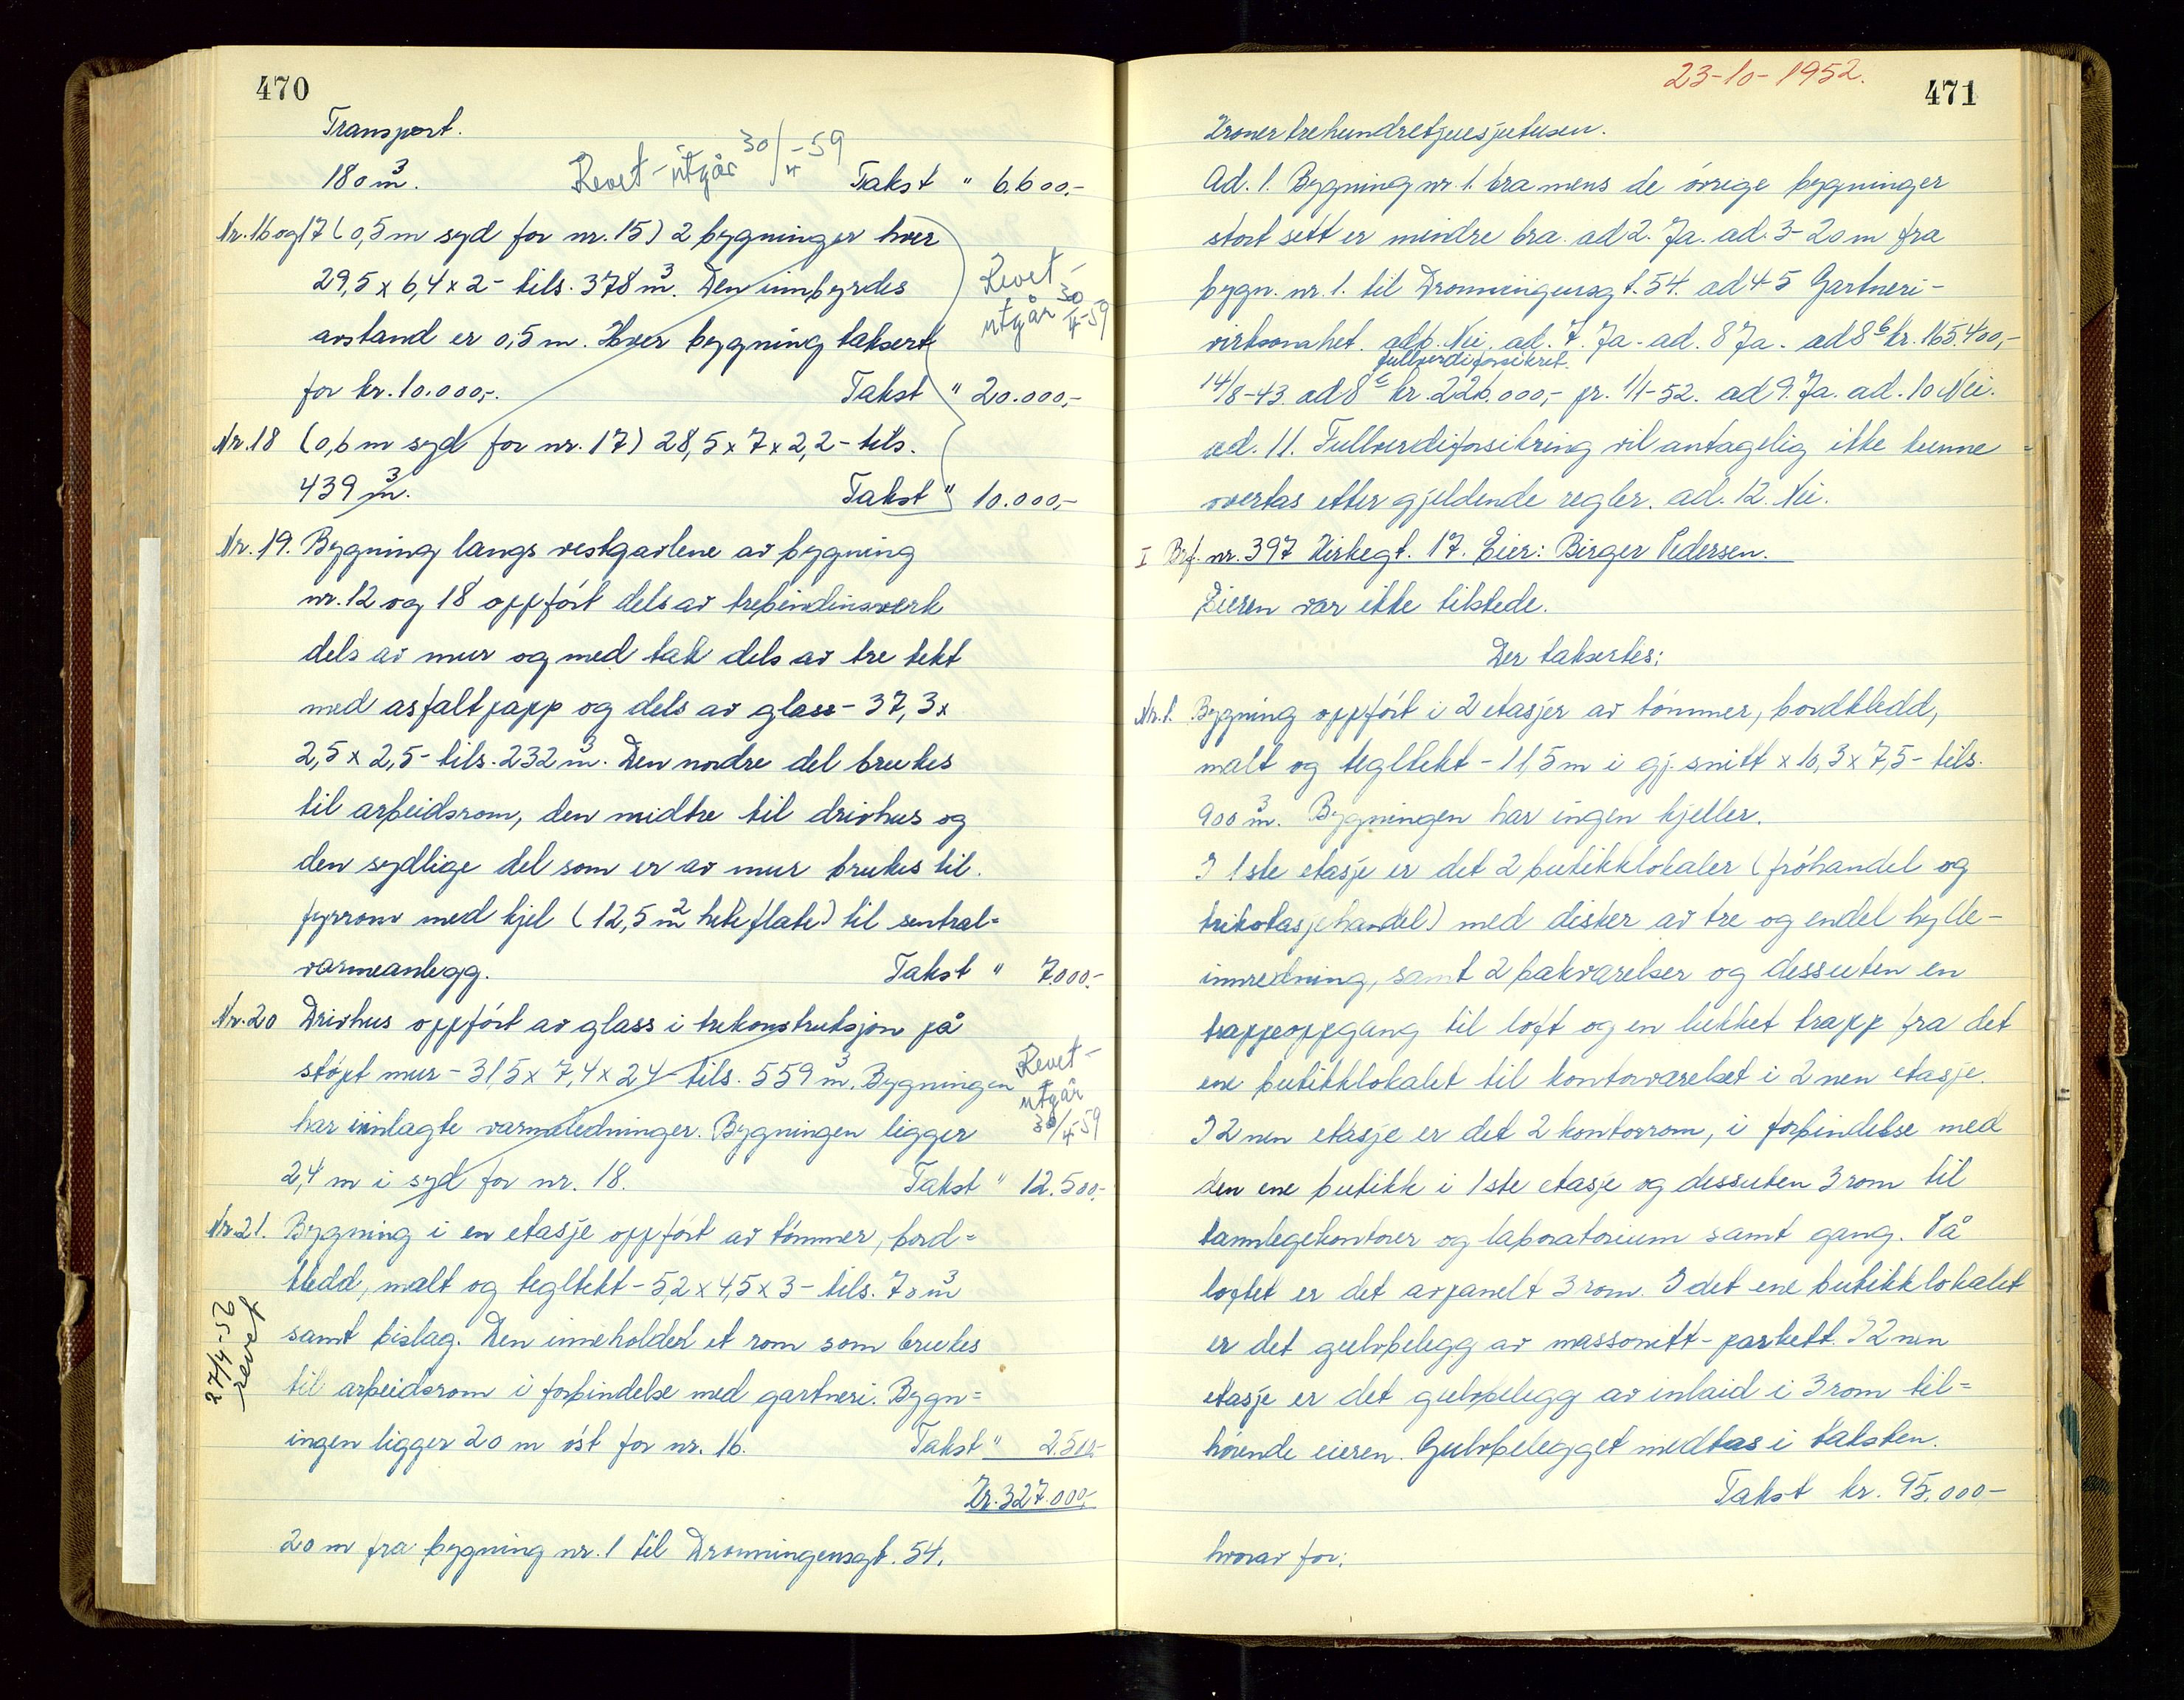 470
Transport.
180 m³. Revet - utgår 30/4-59 Takst " 6.600,-
Nr. 16 og 17 (0,5 m syd for nr. 15) 2 bygninger hver
29,5 x 6,4 x 2 - tils. 378 m³. Den innbyrdes
avstand er 0,5 m. Hver bygning taksert
for kr. 10.000,-. Takst " 20.000,-
Revet -
utgår 30/4-59
Nr. 18 (0,6 m syd for nr. 17) 28,5 x 7 x 2,2 - tils.
439 m³. Takst " 10.000,-
Nr. 19. Bygning langs vestgavlene av bygning
nr. 12 og 18 oppført dels av trebindinsverk
dels av mur og med tak dels av tre tekt
med asfaltpapp og dels av glass - 37,3 x
2,5 x 2,5 - tils. 232 m³. Den nordre del brukes
til arbeidsrom, den midtre til drivhus og
den sydlige del som er av mur brukes til
fyrrom med kjel (12,5 m² heteflate) til sentral=
varmeanlegg. Takst " 7.000.-
Nr. 20 Drivhus oppført av glass i trekonstruksjon på
støpt mur - 31,5 x 7,4 x 2,4 tils. 559 m³. Bygningen
har innlagte varmeledninger. Bygningen ligger
2,4 m i syd for nr. 18. Takst " 12.500,-
Revet -
utgår
30/4-59
Nr. 21. Bygning i en etasje oppført av tømmer, bord=
kledd, malt og tegltekt - 5,2 x 4,5 x 3 - tils. 70 m³
samt bislag. Den inneholder et rom som brukes
til arbeidsrom i forbindelse med gartneri. Bygn=
ingen ligger 20 m øst for nr. 16. Takst " 2.500,-
27/4-56
revet
Kr. 327.000,-
20 m fra bygning nr. 1 til Dronningensgt. 54.
23-10-1952.
471
Kroner trehundretjuesjutusen.
Ad. 1. Bygning nr. 1. bra mens de øvrige bygninger
stort sett er mindre bra. ad 2. Ja. ad. 3- 20 m fra
bygn. nr. 1. til Dronningensgt. 54. ad 4 5 Gartneri-
virksomhet. ad 6. Nei. ad. 7. Ja. ad. 8 Ja. ad 8 b kr. 165.400,-
fullverdiforsikret.
14/8-43. ad 8 c kr. 226.000,- pr. 1/1-52. ad 9. Ja. ad. 10 Nei.
ad. 11. Fullverdiforsikring vil antagelig ikke kunne
overtas etter gjeldende regler. ad. 12. Nei.
I Brf. nr. 397 Kirkegt. 17. Eier: Birger Pedersen.
Eieren var ikke tilstede.
Der taksertes:
Nr. 1. Bygning oppført i 2 etasjer av tømmer, bordkledd,
malt og tegltekt - 11,5 m i gj. snitt x 10,3 x 7,5 - tils.
900 m³. Bygningen har ingen kjeller.
I 1ste etasje er det 2 butikklokaler (frøhandel og
trikotasjehandel) med disker av tre og endel hylle-
innredning, samt 2 bakværelser og dessuten en
trappeoppgang til loft og en lukket trapp fra det
ene butikklokalet til kontorværelset i 2nen etasje.
I 2nen etasje er det 2 kontorrom, i forbindelse med
den ene butikk i 1ste etasje og dessuten 3 rom til
tannlegekontorer og laboratorium samt gang. På
loftet er det avpanelt 3 rom. I det ene butikklokalet
er det gulvbelegg av massonitt-parkett. I 2nen
etasje er det gulvbelegg av inlaid i 3 rom til=
hørende eieren. Gulvbelegget medtas i taksten.
Takst kr. 95.000-
hvorav for: